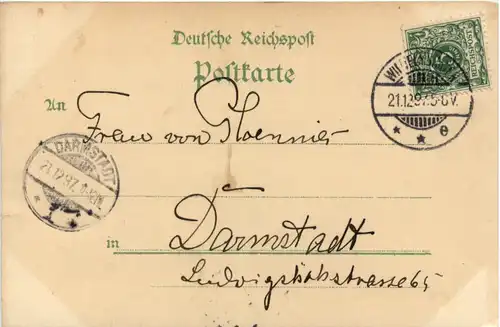 Deutsche Reichspost
Postkarte
An
Frau von Hoennies
in Darmstadt
Ludwigshöhstrasse 65
21.12.97. 5-6 V.
DARMSTADT
21.12.97.